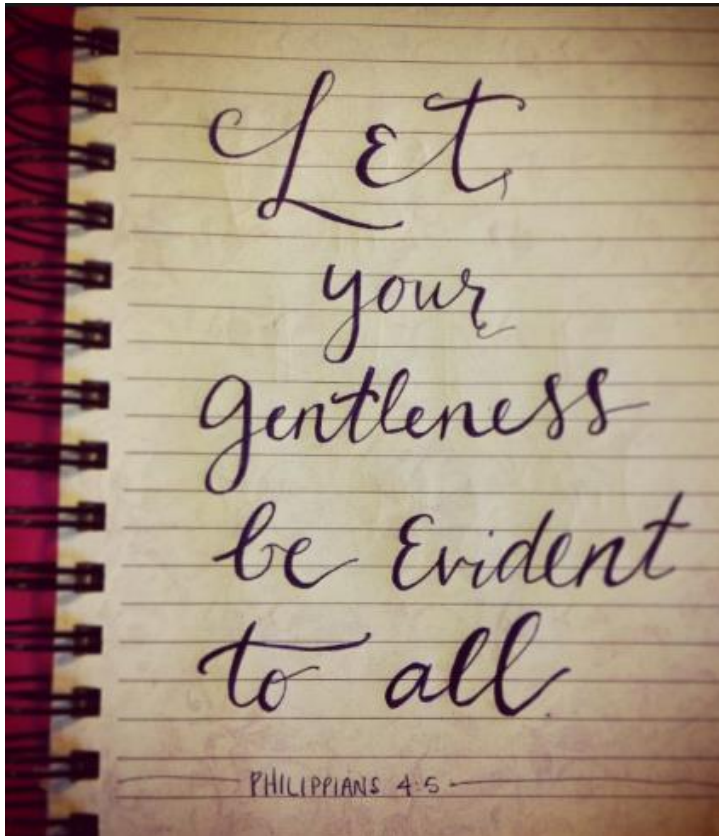 Let
your
gentleness
be Evident
to all.
PHILIPPIANS 4:5